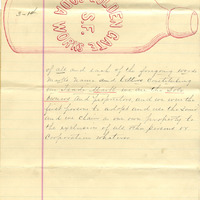 3-14
GOLDEN GATE
S.F.
SODA
of all and each of the foregoing word
Marks Names and Letters Constituting
our Trade Mark we are the Sole
Owners and Proprietors and we was the
first person to adopt and use the Same
and we claim as our own property to
the exclusion of all Other Persons or
Corporation whatever